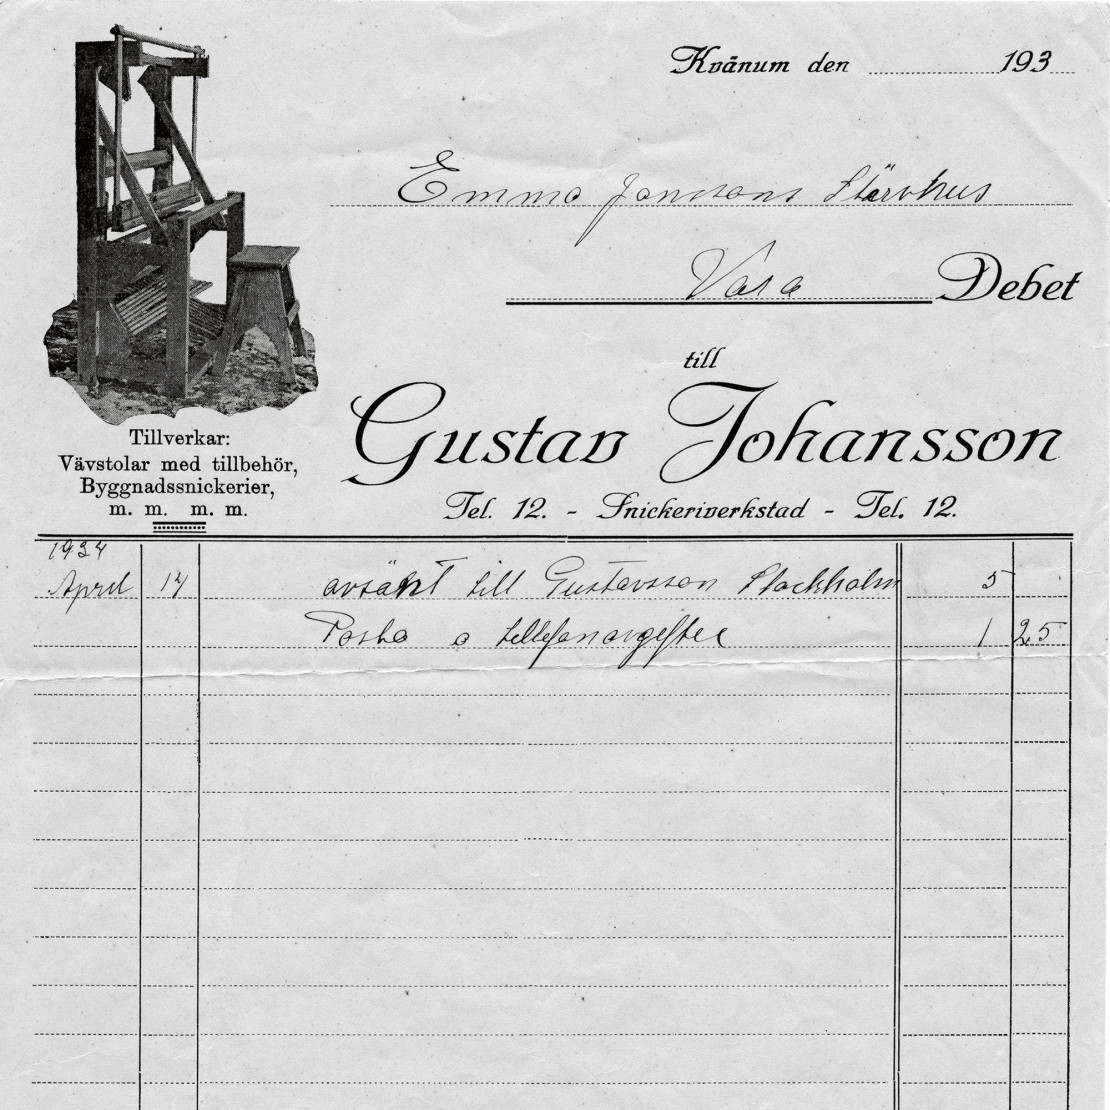 Kvänum den 193
Emma Janssons Stärbhus
Vara Debet
till
Gustav Johansson
Tel. 12. - Snickeriverkstad - Tel. 12.
Tillverkar:
Vävstolar med tillbehör,
Byggnadssnickerier,
m. m. m. m.
1934
April 14 avsänt till Gustavsson Stockholm 5
Porto o tellefonavgifter 1 25